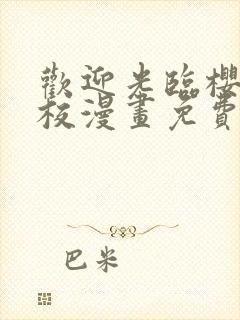 歡迎光臨櫻
板漫畫免費
巴米